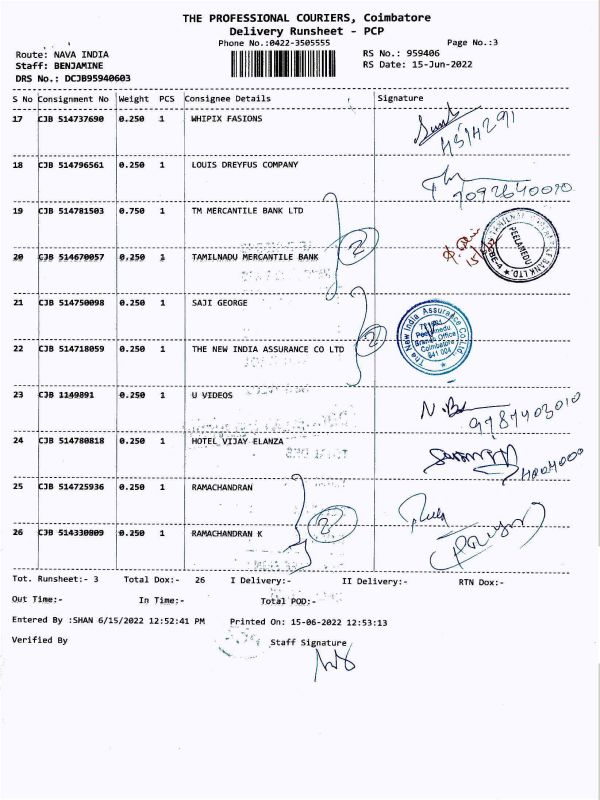 THE PROFESSIONAL COURIERS, Coimbatore
Delivery Runsheet - PCP
Phone No.:0422-3505555
Page No.:3
Route: NAVA INDIA
RS No.: 959406
Staff: BENJAMINE
RS Date: 15-Jun-2022
DRS No.: DCJB95940603
S No Consignment No Weight PCS Consignee Details Signature
17 CJB 514737690 0.250 1 WHIPIX FASIONS
18 CJB 514796561 0.250 1 LOUIS DREYFUS COMPANY
7092640010
19 CJB 514781503 0.750 1 TM MERCANTILE BANK LTD
2
PEELAMEDU
20 CJB 514670057 0.250 1 TAMILNADU MERCANTILE BANK
21 CJB 514750098 0.250 1 SAJI GEORGE
2
The New India Assurance Co.Ltd.
Peelamedu
Branch Office
Coimbatore
641 004
22 CJB 514718059 0.250 1 THE NEW INDIA ASSURANCE CO LTD
23 CJB 1149891 0.250 1 U VIDEOS
9787403010
24 CJB 514780818 0.250 1 HOTEL VIJAY ELANZA
25 CJB 514725936 0.250 1 RAMACHANDRAN
2
26 CJB 514330809 0.250 1 RAMACHANDRAN K
Tot. Runsheet:- 3 Total Dox:- 26 I Delivery:- II Delivery:- RTN Dox:-
Out Time:- In Time:- Total POD:-
Entered By :SHAN 6/15/2022 12:52:41 PM Printed On: 15-06-2022 12:53:13
Verified By Staff Signature